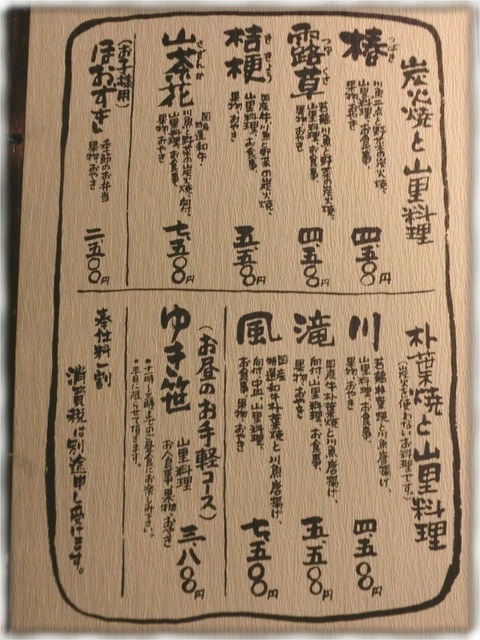 炭火焼と山里料理
椿
つばき
川魚二点と野菜の炭火焼、
山里料理、お食事、
果物、おやき
四、五〇〇円
露草
つゆくさ
若鶏、川魚と野菜の炭火焼、
山里料理、お食事、
果物、おやき
四、五〇〇円
桔梗
ききょう
国産牛、川魚と野菜の炭火焼、
山里料理、お食事、
果物、おやき
五、五〇〇円
山茶花
さざんか
国産特選和牛、
川魚と野菜の炭火焼、向付、
山里料理、お食事、
果物、おやき
七、五〇〇円
(お子様用)
ほおずき
季節のお弁当
果物、おやき
二、五〇〇円
朴葉焼と山里料理
(炭火を使わないお料理です。)
川
若鶏朴葉焼と川魚唐揚げ、
山里料理、お食事、
果物、おやき
四、五〇〇円
滝
国産牛朴葉焼と川魚唐揚げ、
向付、山里料理、お食事、
果物、おやき
五、五〇〇円
風
国産
特選和牛朴葉焼と川魚唐揚げ、
向付、中皿、山里料理、
お食事、果物、おやき
七、五〇〇円
(お昼のお手軽コース)
ゆき笹
山里料理
お食事、果物、おやき
三、八〇〇円
・平日に限らせて頂きます。
奉仕料一割
消費税は別途申し受けます。